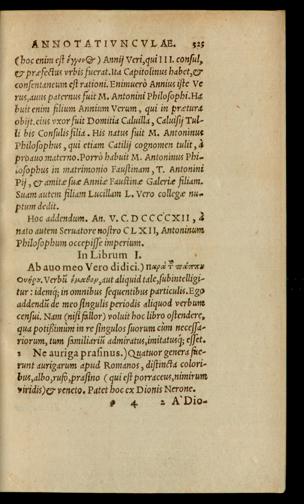 ANNOTATIVNCVLAE. 525
(hoc enim est ἔγγονος) Annij Veri, qui III. consul,
& præfectus vrbis fuerat. Ita Capitolinus habet, &
consentaneum est rationi. Enimuerò Annius iste Ve
rus, auus paternus fuit M. Antonini Philosophi. Ha
buit enim filium Annium Verum, qui in prætura
obijt. eius vxor fuit Domitia Caluilla, Caluisij Tul-
li bis Consulis filia. His natus fuit M. Antoninus
Philosophus, qui etiam Catilij cognomen tulit, à
proauo materno. Porrò habuit M. Antoninus Phi-
losophus in matrimonio Faustinam, T. Antonini
Pij, & amitæ suæ Anniæ Faustinæ Galeriæ filiam.
Suam autem filiam Lucillam L. Vero collegæ nu-
ptum dedit.
Hoc addendum. An. V. C. DCCCCXII, à
nato autem Seruatore nostro CLXII, Antoninum
Philosophum occepisse imperium.
In Librum I.
Ab auo meo Vero didici.) παρὰ τοῦ πάππου
Οὐήρου. Verbū ἔμαθον, aut aliquid tale, subintelligi-
tur: idemq; in omnibus sequentibus particulis. Ego
addendū de meo singulis periodis aliquod verbum
censui. Nam (nisi fallor) voluit hoc libro ostendere,
qua potißimùm in re singulos suorum cùm necessa-
riorum, tum familiariū admiratus, imitatusq; esset.
2 Ne auriga prasinus.) Quatuor genera fue-
runt aurigarum apud Romanos, distincta colori-
bus, albo, rufo, prasino (qui est porraceus, nimirum
viridis) & veneto. Patet hoc ex Dionis Nerone.
4 2 A Dio-